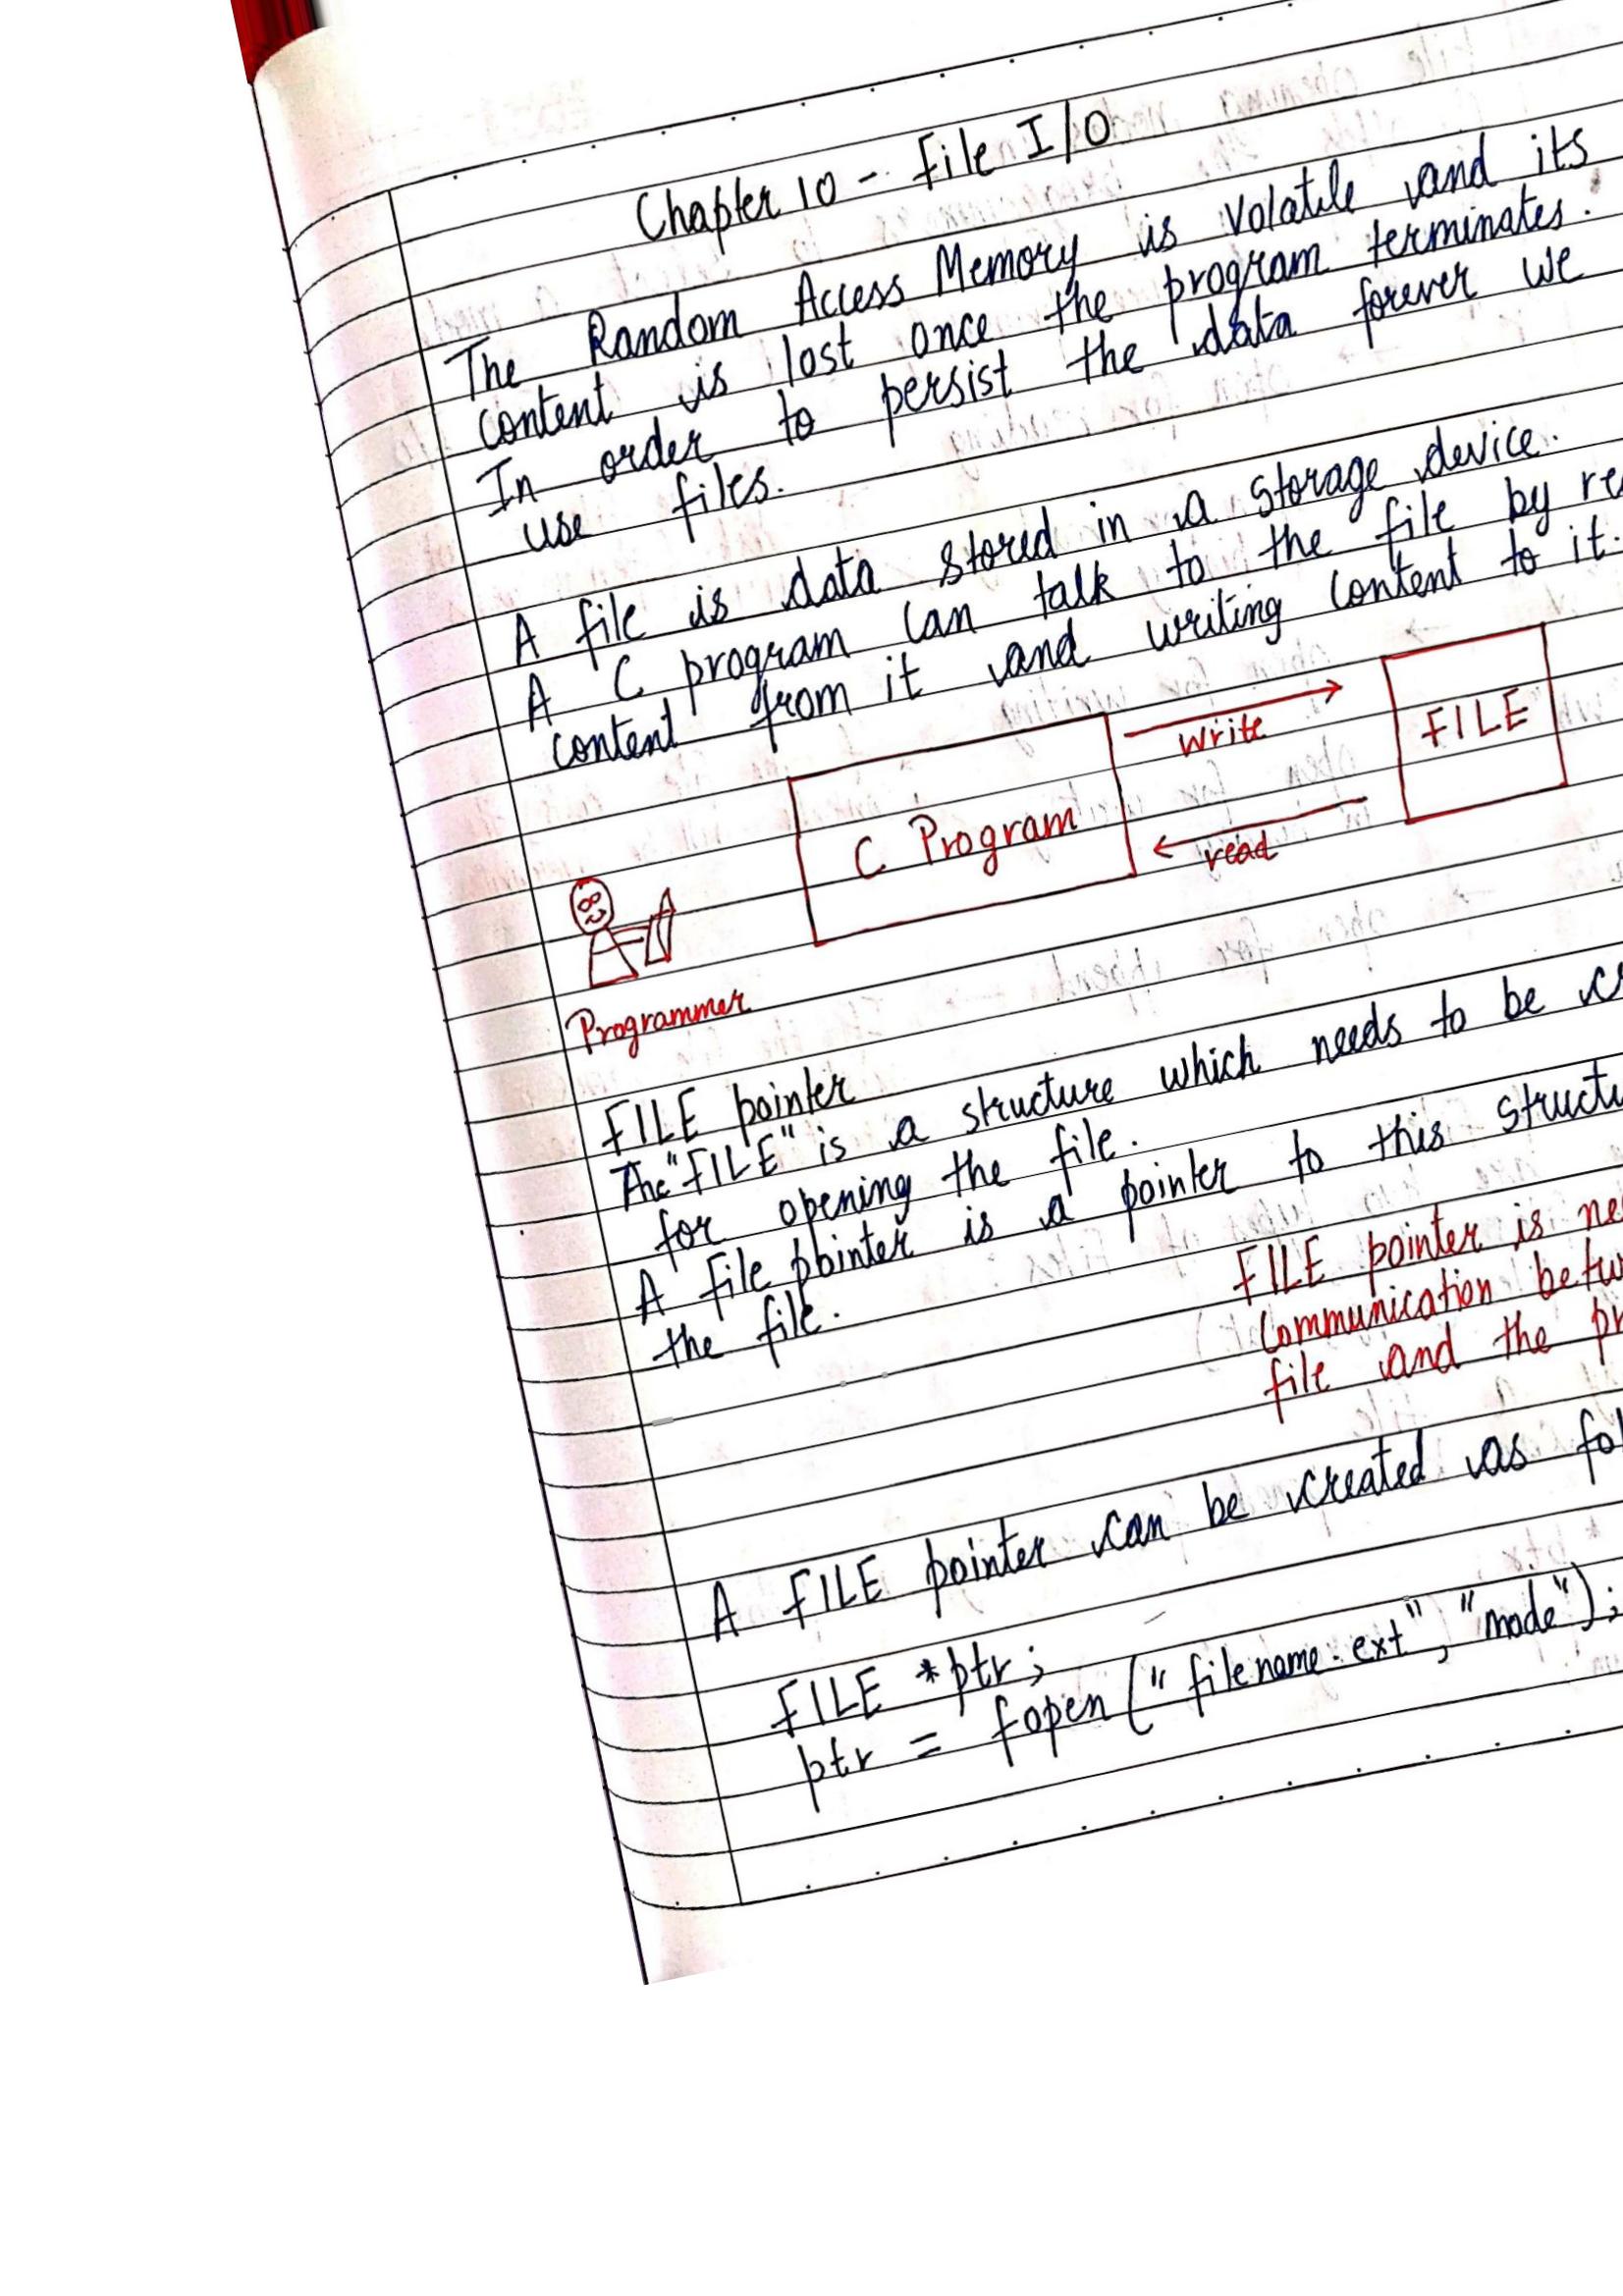 Chapter 10 - File I/O
The Random Access Memory is volatile and its
content is lost once the program terminates.
In order to persist the data forever we
use files.
A file is data stored in a storage device.
A C program can talk to the file by
content from it and writing content to it.
write
FILE
C Program
read
Programmer
FILE pointer
The "FILE" is a structure which needs to be
for opening the file.
A file pointer is a pointer to this
the file.
FILE pointer is
communication
file and the
A FILE pointer can be created as
FILE *ptr;
ptr = fopen ("filename.ext", "mode");